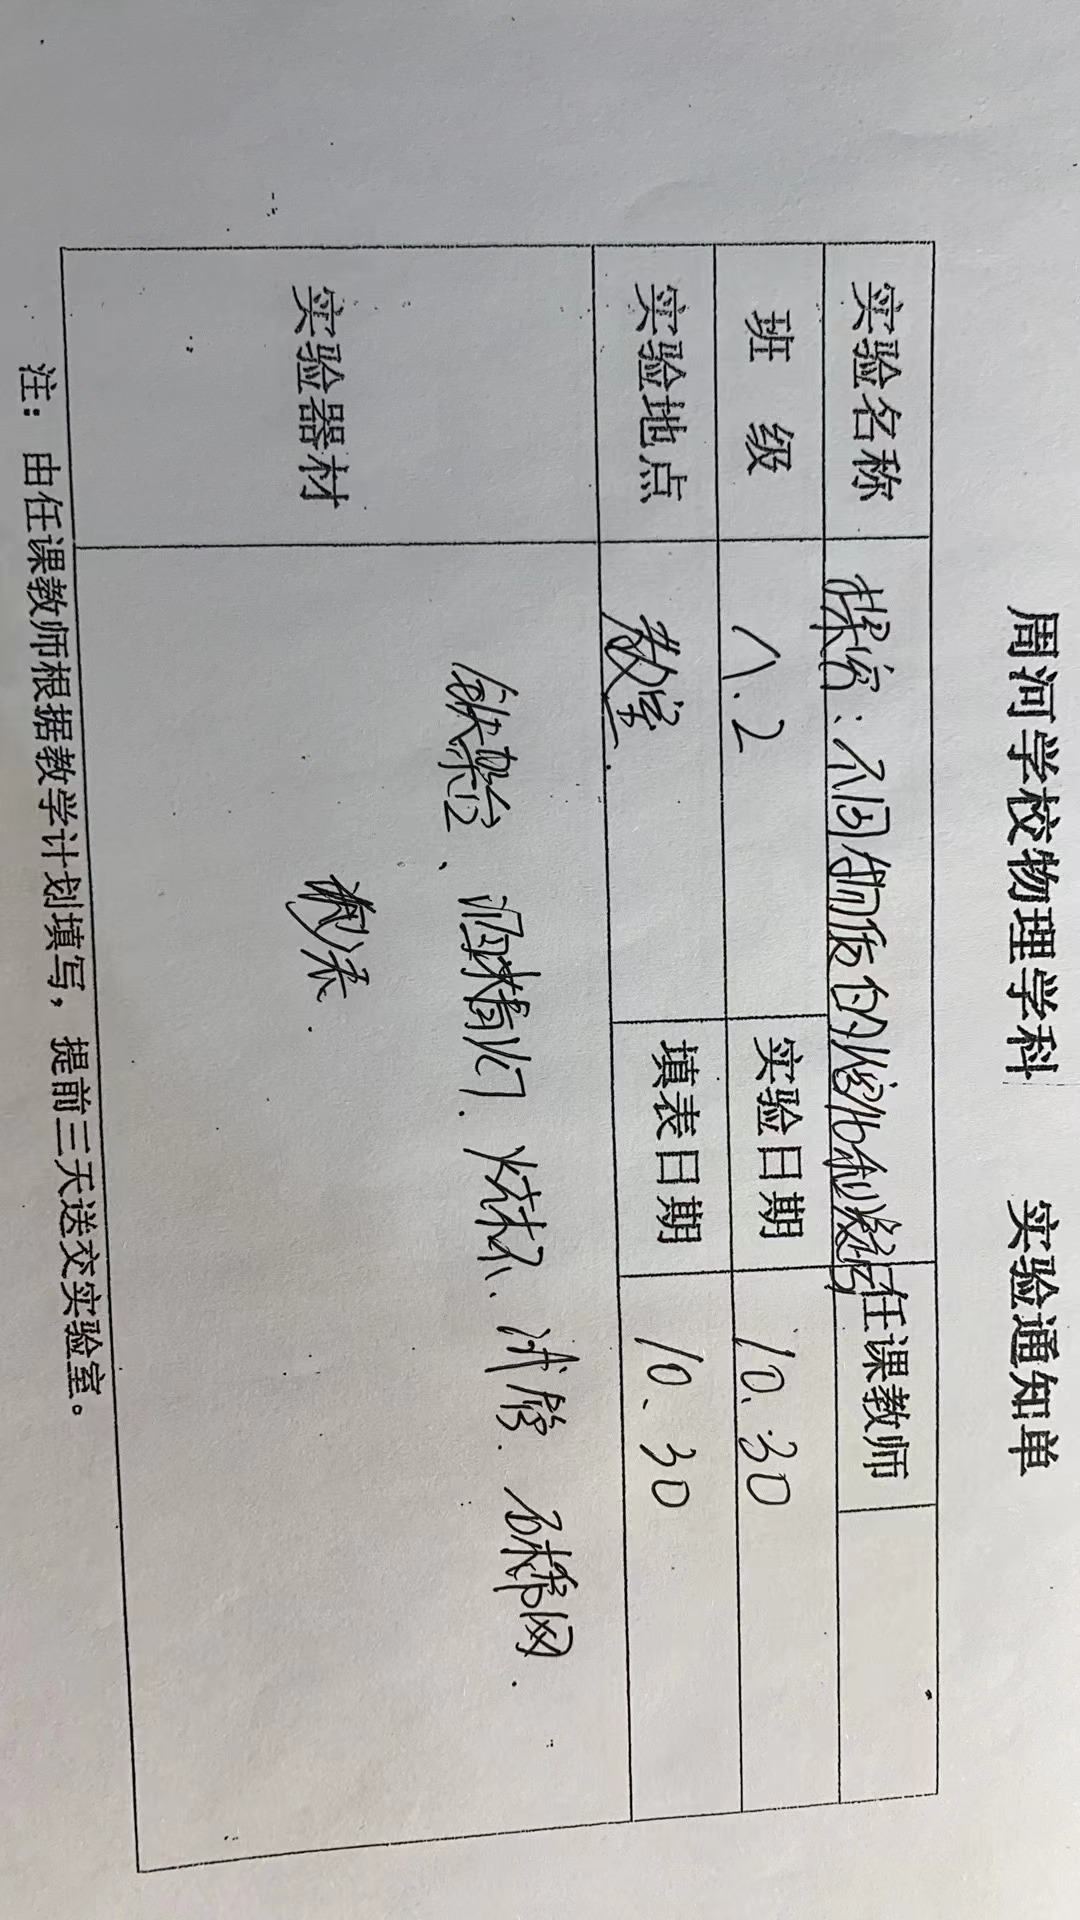 周河学校物理学科 实验通知单
实验名称 探究:不同物质的熔化和凝固 任课教师
班 级 八.2 实验日期 10.30
实验地点 教室. 填表日期 10.30
实验器材 铁架台、酒精灯.烧杯、试管.石棉网.
注:由任课教师根据教学计划填写,提前三天送交实验室。